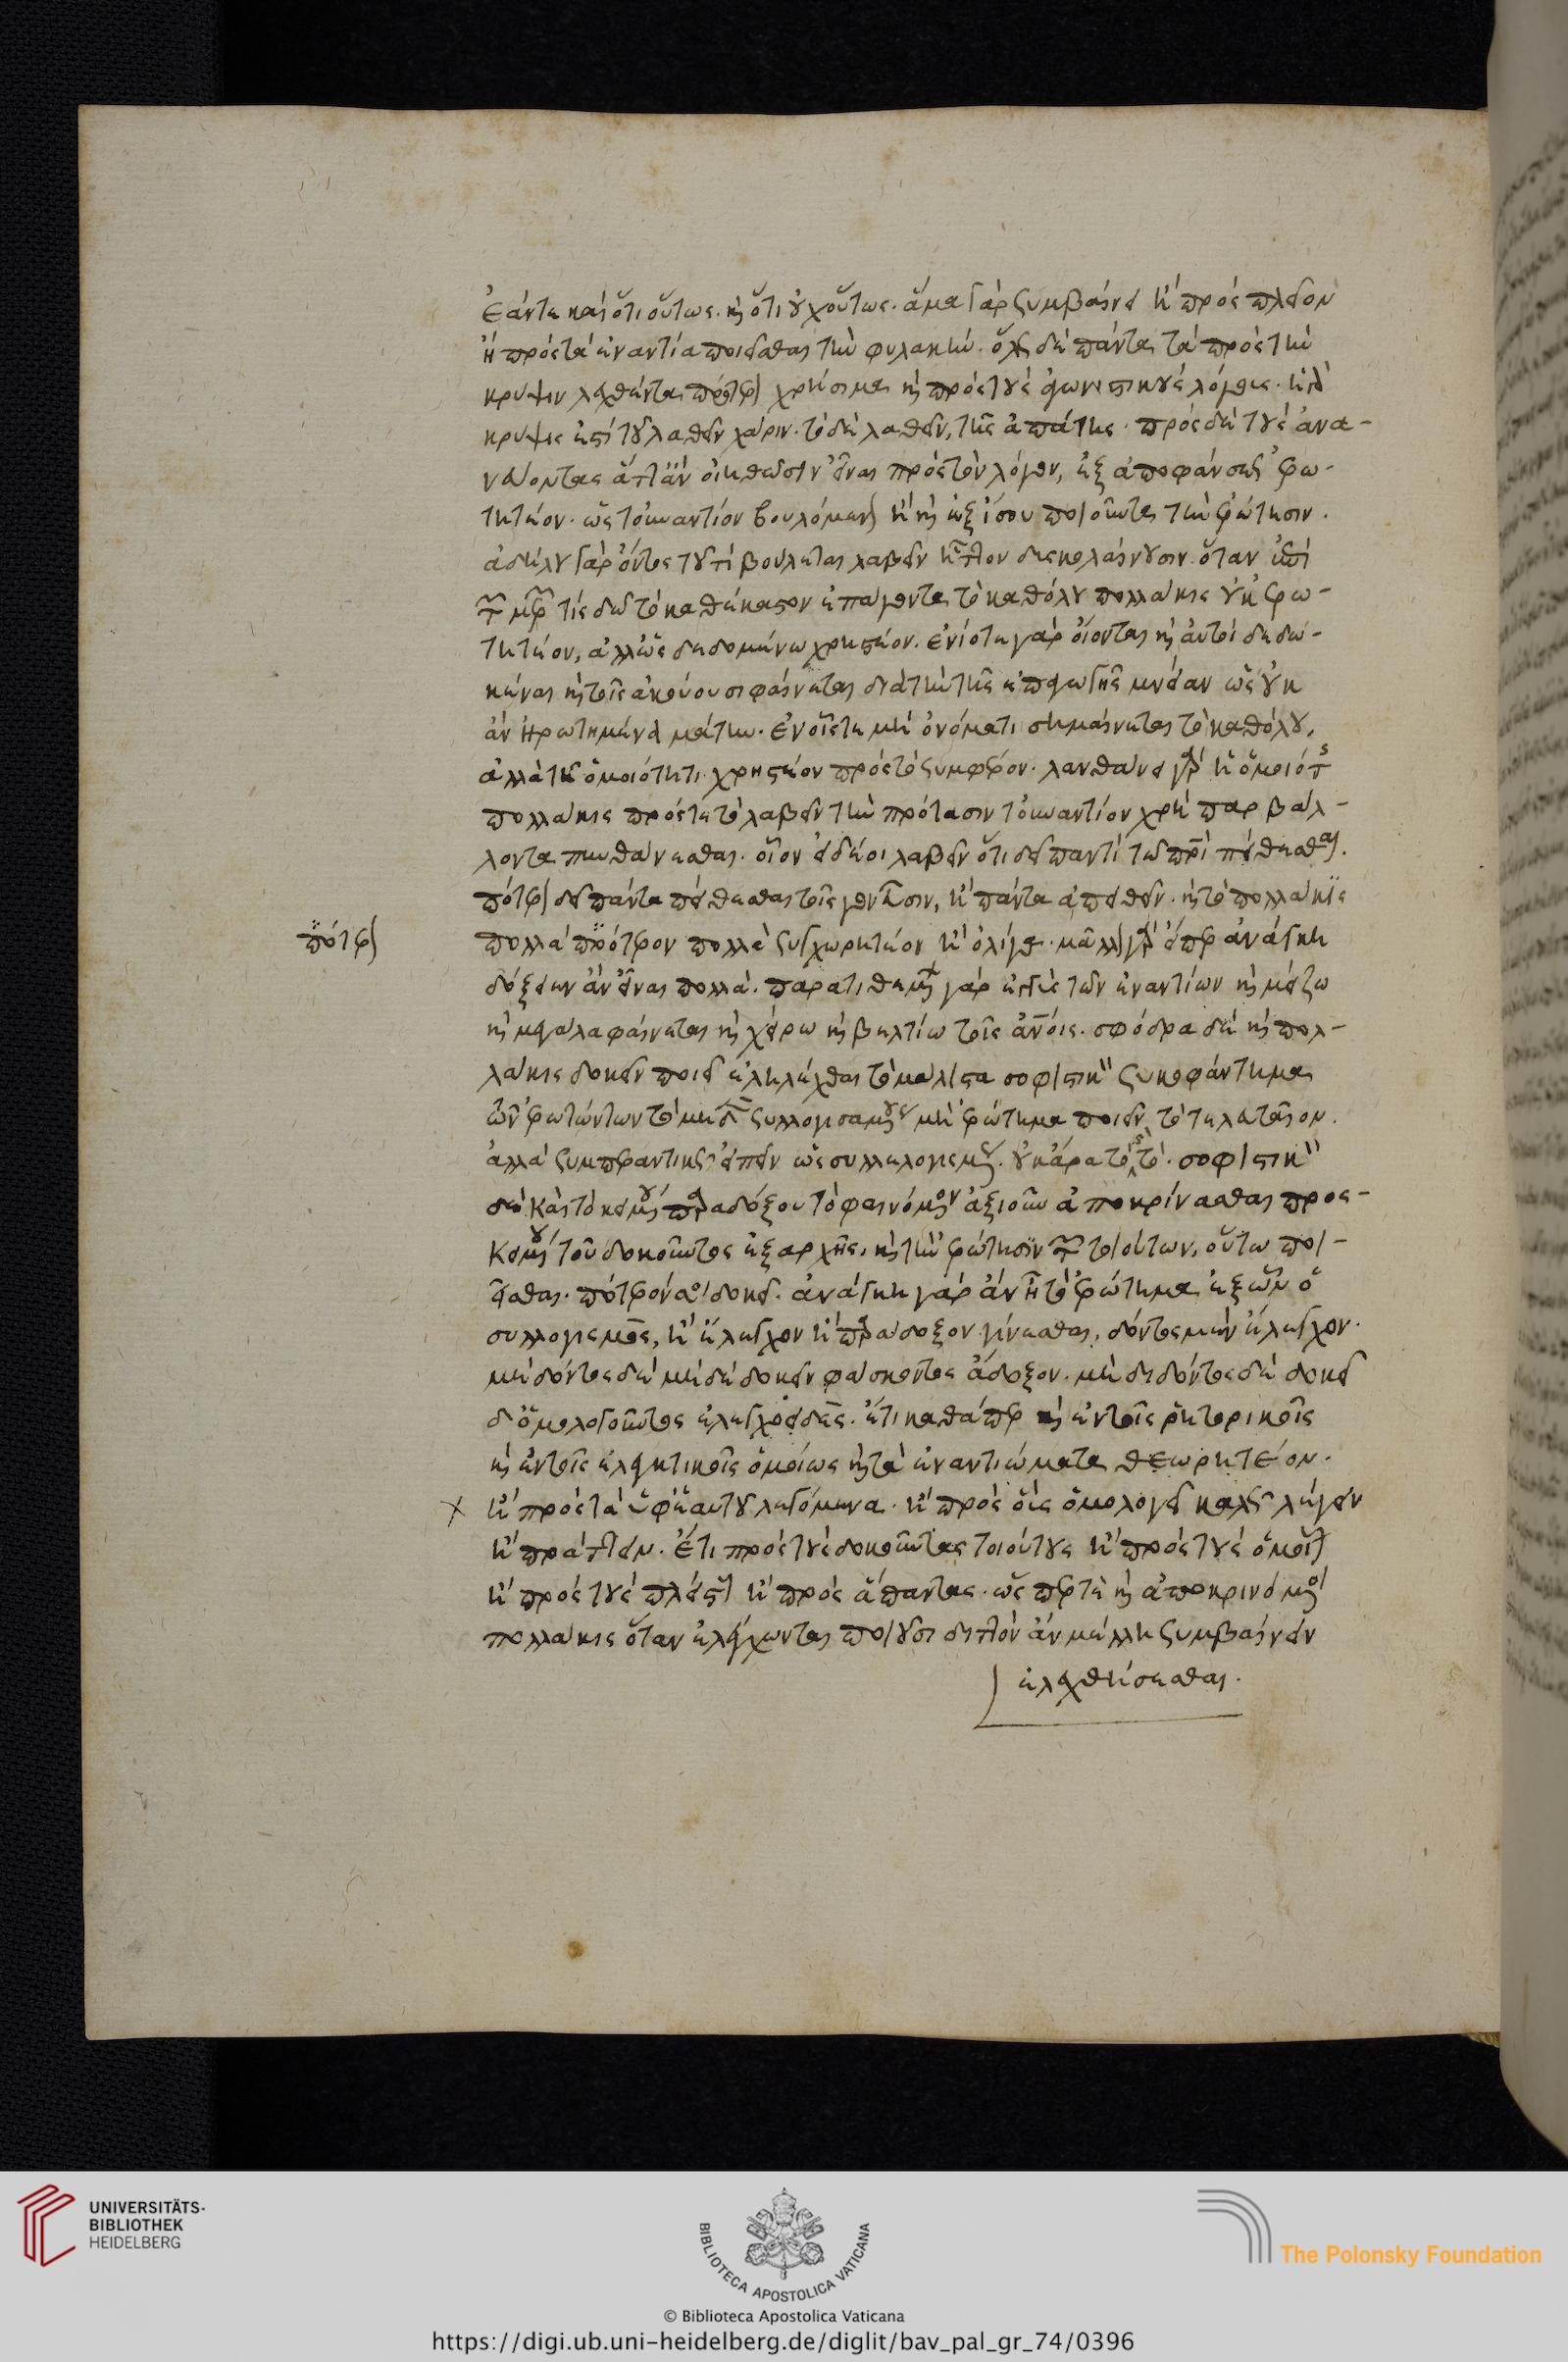 ἐάντε καὶ ὅτι οὕτως. καὶ ὅτι οὐχ οὕτως. ἅμα γὰρ συμβαίνει ἢ πρὸς πλεῖον
ἢ πρὸς τὰ ἐναντία ποιεῖσθαι τὴν φυλακήν. ὅλως δὲ πάντα τὰ πρὸς τὴν
κρύψιν λεχθέντα πρότερον χρήσιμα καὶ πρὸς τοὺς ἀγωνιστικοὺς λόγους. ἡ γὰρ
κρύψις ἐστὶ τοῦ λαθεῖν χάριν. τὸ δὲ λαθεῖν, τῆς ἀπάτης. πρὸς δὲ τοὺς ἀνα-
νεύοντας ἅττ' ἂν οἰηθῶσιν εἶναι πρὸς τὸν λόγον, ἐξ ἀποφάνσεως ἐρω-
τητέον. ὡς τοὐναντίον βουλόμενον ἢ καὶ ἐξίσου ποιοῦντα τὴν ἐρώτησιν.
ἀδήλου γὰρ ὄντος τοῦ τί βούλεται λαβεῖν ἧττον δυσκολαίνουσιν. ὅταν ἐπὶ
τῶν μερῶν τὶς διδῷ τὸ καθέκαστον ἐπάγοντα τὸ καθόλου πολλάκις οὐκ ἐρω-
τητέον, ἀλλ' ὡς δεδομένω χρηστέον. ἐνίοτε γὰρ οἴονται καὶ αὐτοὶ δεδω-
κέναι καὶ τοῖς ἀκούουσι φαίνεται διὰ τὴν τῆς ἐπαγωγῆς μνείαν ὡς οὐκ
ἂν ἠρωτημένα μάτην. ἐν οἷς τε μὴ ὀνόματι σημαίνεται τὸ καθόλου,
ἀλλὰ τῇ ὁμοιότητι χρηστέον πρὸς τὸ συμφέρον. λανθάνει γὰρ ἡ ὁμοιότης
πολλάκις πρός τε τὸ λαβεῖν τὴν πρότασιν τοὐναντίον χρὴ παρβάλ-
λοντα πυνθάνεσθαι. οἷον εἰ δέοι λαβεῖν ὅτι δεῖ παντὶ τῷ πατρὶ πείθεσθαι.
πότερον δεῖ πάντα πείθεσθαι τοῖς γονεῦσιν, ἢ πάντα ἀπειθεῖν. καὶ τὸ πολλάκις
πότερον
πολλὰ πρότερον πολλὰ συγχωρητέον ἢ ὀλίγα. μᾶλλον γὰρ εἴπερ ἀνάγκη
δόξειεν ἂν εἶναι πολλά. παρατιθεμένων γὰρ ἐγγὺς τῶν ἐναντίων καὶ μείζω
καὶ μεγάλα φαίνεται καὶ χείρω καὶ βελτίω τοῖς ἀνοις. σφόδρα δὲ καὶ πολ-
λάκις δοκεῖν ποιεῖ ἐληλέγχθαι τὸ μάλιστα σοφιστικὸν συκοφάντημα
τῶν ἐρωτώντων τὸ μηδὲν συλλογισαμένους μὴ ἐρώτημα ποιεῖν τὸ τελευταῖον.
ἀλλὰ συμπεραντικῶς εἰπεῖν ὡς συλλελογισμένους. οὐκ ἄρα τὸ καὶ τό. σοφιστικὸν
δὲ καὶ τὸ κειμένου παραδόξου τὸ φαινόμενον ἀξιοῦν ἀποκρίνασθαι προς-
κειμένου τοῦ δοκοῦντος ἐξ αρχῆς, καὶ τὴν ἐρώτησιν τῶν τοιούτων, οὕτω ποι-
εῖσθαι. πότερόν σοι δοκεῖ. ἀνάγκη γὰρ ἂν ᾖ τὸ ἐρώτημα ἐξ ὧν ὁ
συλλογισμὸς, ἢ ἔλεγχον ἢ παράδοξον γίνεσθαι, δόντος μὲν ἔλεγχον.
μὴ δόντος δὲ μὴ δὲ δοκεῖν φάσκοντος ἄδοξον. μὴ διδόντος δὲ δοκεῖ
δ' ὁμολογοῦντος ἐλεγχοειδές. ἔτι καθάπερ καὶ ἐν τοῖς ῥητορικοῖς
καὶ ἐν τοῖς ἐλεγκτικοῖς ὁμοίως καὶ τὰ ἐναντιώματα θεωρητέον.
ἢ πρὸς τὰ ὑφ' ἑαυτοῦ λεγόμενα. ἢ πρὸς οἷς ὁμολογεῖ καλῶς λέγειν
ἢ πράττειν. ἔτι πρὸς τοὺς δοκοῦντας τοιούτους ἢ πρὸς τοὺς ὁμοίους
ἢ πρὸς τοὺς πλείστους ἢ πρὸς ἅπαντας. ὥς περ τὲ καὶ ἀποκρινόμενοι
πολλάκις ὅταν ἐλέγχωνται ποιοῦσι διττὸν ἂν μέλλη συμβαίνειν
ἐλεγχθήσεσθαι.
UNIVERSITÄTS-
BIBLIOTHEK
HEIDELBERG
BIBLIOTECA APOSTOLICA VATICANA
The Polonsky Foundation
© Biblioteca Apostolica Vaticana
https://digi.ub.uni-heidelberg.de/diglit/bav_pal_gr_74/0396